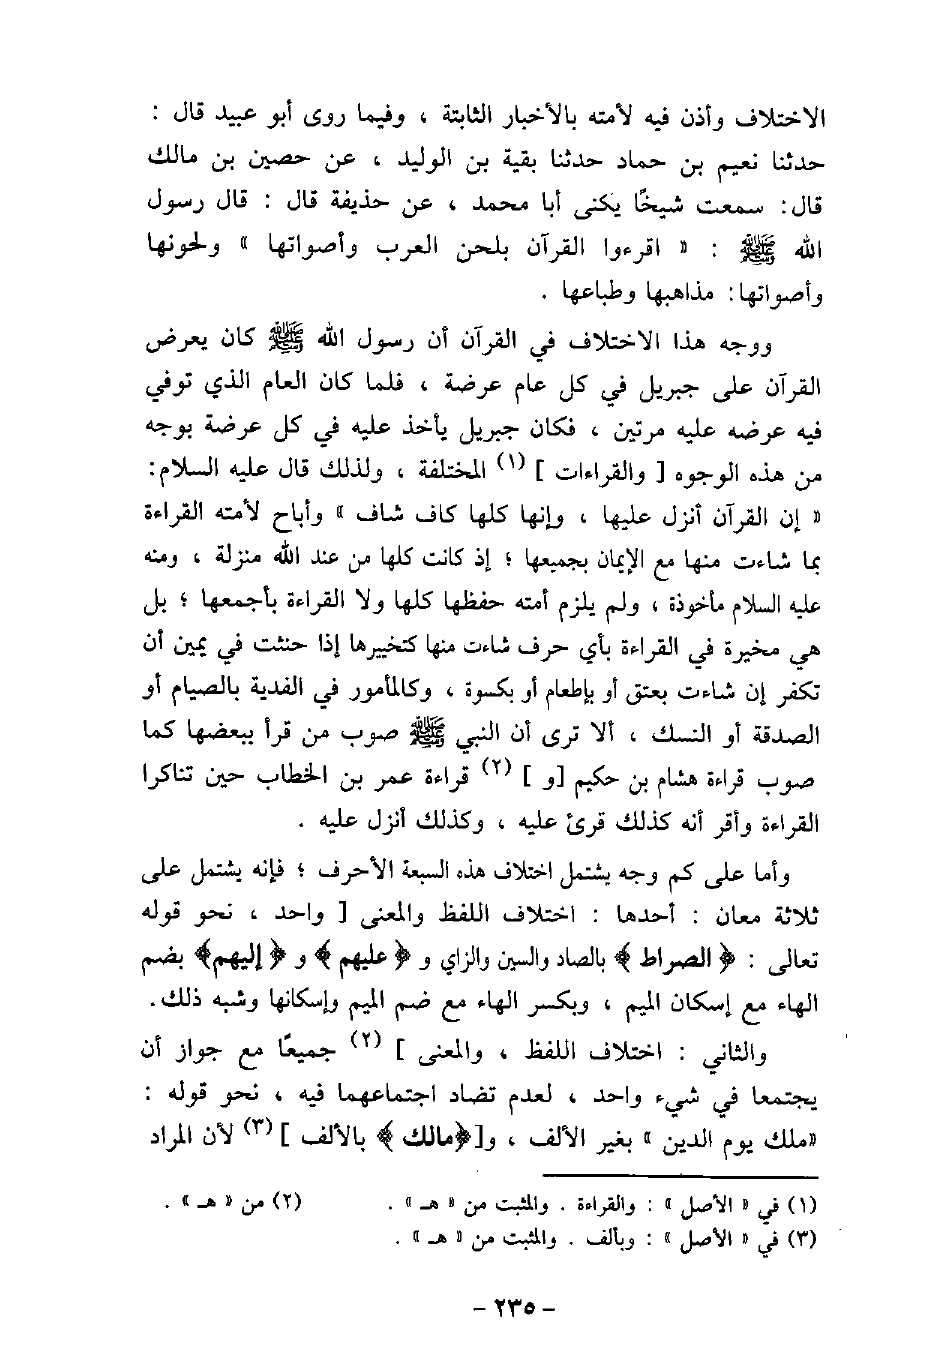 الاختلاف وأذن فيه لأمته بالأخبار الثابتة ، وفيما روى أبو عبيد قال :
حدثنا نعيم بن حماد حدثنا بقية بن الوليد ، عن حصين بن مالك
قال: سمعت شيخًا يكنى أبا محمد ، عن حذيفة قال : قال رسول
الله ﷺ : « اقرءوا القرآن بلحن العرب وأصواتها » ولحونها
وأصواتها: مذاهبها وطباعها .
ووجه هذا الاختلاف في القرآن أن رسول الله ﷺ كان يعرض
القرآن على جبريل في كل عام عرضة ، فلما كان العام الذي توفي
فيه عرضه عليه مرتين ، فكان جبريل يأخذ عليه في كل عرضة بوجه
من هذه الوجوه [ والقراءات ] (١) المختلفة ، ولذلك قال عليه السلام:
« إن القرآن أنزل عليها ، وإنها كلها كاف شاف » وأباح لأمته القراءة
بما شاءت منها مع الإيمان بجميعها ؛ إذ كانت كلها من عند الله منزلة ، ومنه
عليه السلام مأخوذة ، ولم يلزم أمته حفظها كلها ولا القراءة بأجمعها ؛ بل
هي مخيرة في القراءة بأي حرف شاءت منها كتخييرها إذا حنثت في يمين أن
تكفر إن شاءت بعتق أو بإطعام أو بكسوة ، وكالمأمور في الفدية بالصيام أو
الصدقة أو النسك ، ألا ترى أن النبي ﷺ صوب من قرأ ببعضها كما
صوب قراءة هشام بن حكيم [و ] (٢) قراءة عمر بن الخطاب حين تناكرا
القراءة وأقر أنه كذلك قرئ عليه ، وكذلك أنزل عليه .
وأما على كم وجه يشتمل اختلاف هذه السبعة الأحرف ؛ فإنه يشتمل على
ثلاثة معان : أحدها : اختلاف اللفظ والمعنى [ واحد ، نحو قوله
تعالى : ﴿ الصراط ﴾ بالصاد والسين والزاي و ﴿ عليهم ﴾ و ﴿ إليهم﴾ بضم
الهاء مع إسكان الميم ، وبكسر الهاء مع ضم الميم وإسكانها وشبه ذلك.
والثاني : اختلاف اللفظ ، والمعنى ] (٢) جميعًا مع جواز أن
يجتمعا في شيء واحد ، لعدم تضاد اجتماعهما فيه ، نحو قوله :
«ملك يوم الدين » بغير الألف ، و[﴿مالك ﴾ بالألف ] (٣) لأن المراد
(١) في « الأصل » : والقراءة . والمثبت من « هـ » . (٢) من « هـ » .
(٣) في « الأصل » : وبألف . والمثبت من « هـ » .
- ٢٣٥ -